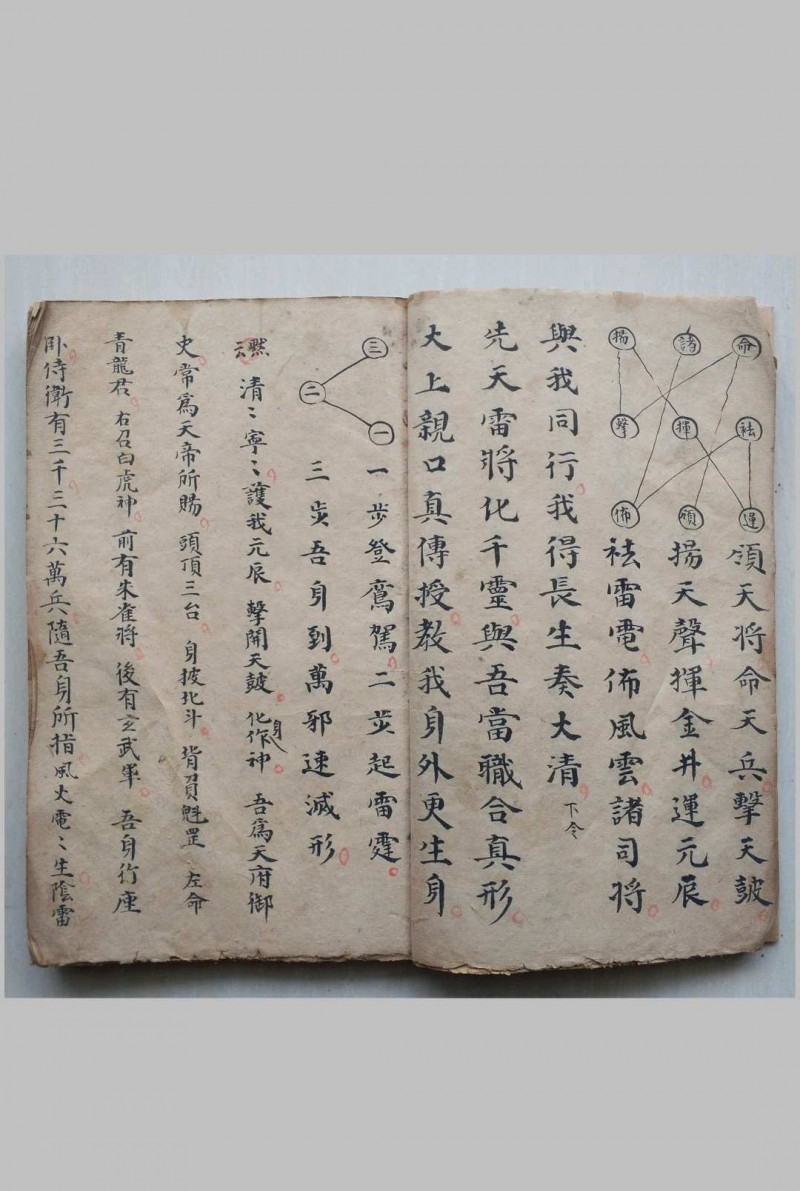 命 祛 運
諸 揮 領
揚 擊 佈
領天將命天兵擊天皷
揚天聲揮金井運元辰
祛雷電佈風雲諸司將
與我同行我得長生奏大清 下令
先天雷將化千靈與吾當職合真形
大上親口真傳授教我身外更生身
三 二 一
一步登鸞駕二步起雷霆
三步吾身到萬邪速滅形
黙云 清〻寧〻護我元辰 擊開天皷 化作身神 吾爲天府御
史常爲天帝所賜 頭頂三台 身披北斗 背負魁罡 左命
青龍君 右召白虎神 前有朱雀將 後有玄武軍 吾身行座
卧侍衛有三千三十六萬兵隨吾身所指風火電〻生陰雷